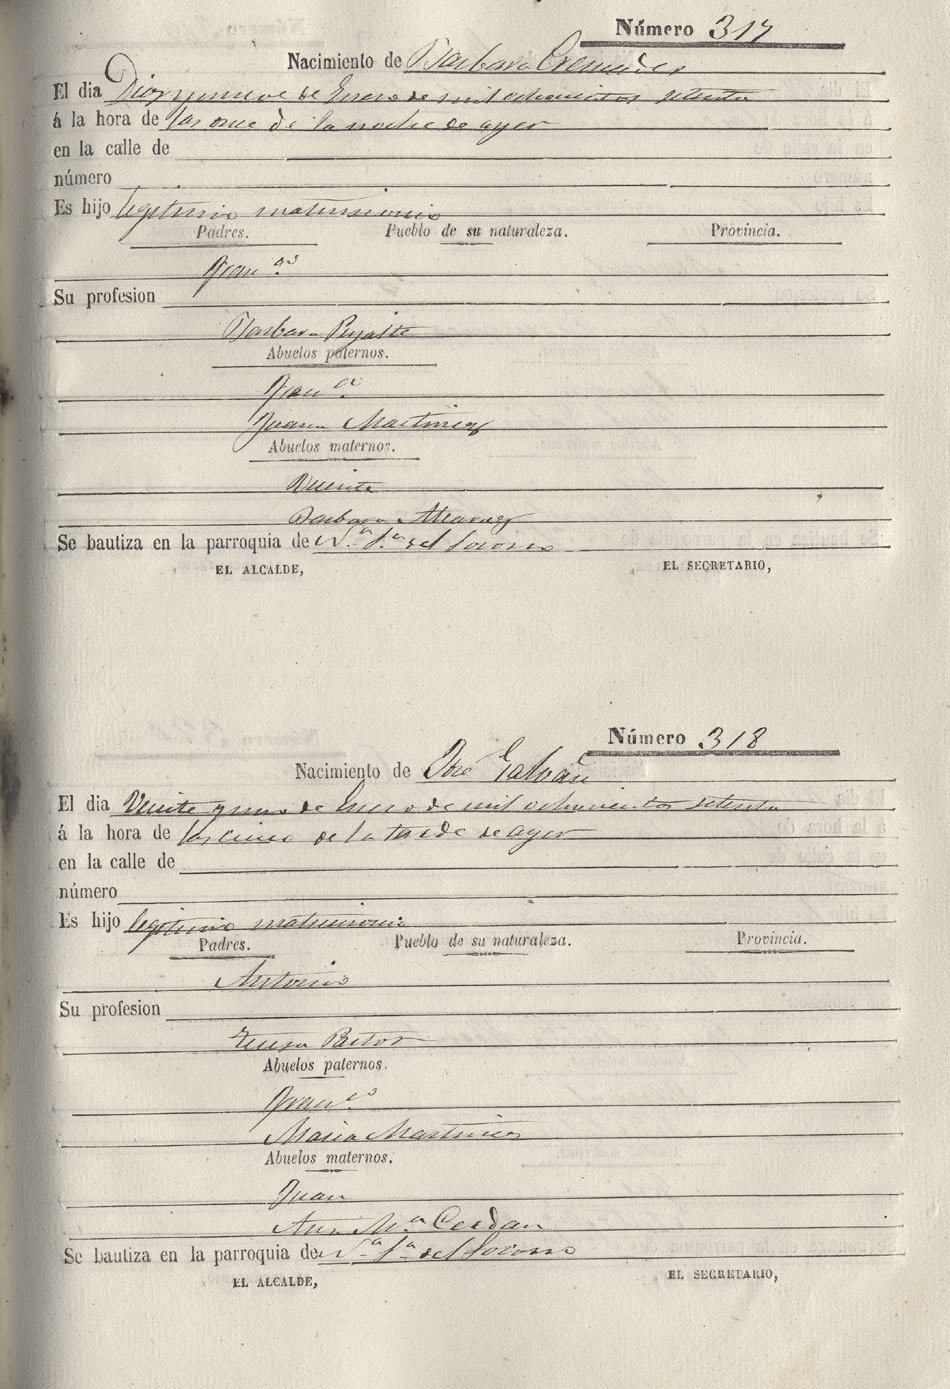 Número 317
Nacimiento de Barbara Cremades
El dia Diez y nueve de Enero de mil ochocientos setenta
á la hora de las once de la noche de ayer
en la calle de
número
Es hijo legitimo matrimonio
Padres. Pueblo de su naturaleza. Provincia.
Fran.co
Su profesion
Barbara Pujalte
Abuelos paternos.
Fran.co
Juana Martinez
Abuelos maternos.
Vicente
Barbara Alvarez
Se bautiza en la parroquia de N.a S.a del Socorro
EL ALCALDE, EL SECRETARIO,
Número 318
Nacimiento de José Galvañ
El dia Veinte y uno de Enero de mil ochocientos setenta
á la hora de las cinco de la tarde de ayer
en la calle de
número
Es hijo legitimo matrimonio
Padres. Pueblo de su naturaleza. Provincia.
Antonio
Su profesion
Teresa Pastor
Abuelos paternos.
Fran.co
Maria Martinez
Abuelos maternos.
Juan
Ana M.a Cerdan
Se bautiza en la parroquia de N.a S.a del Socorro
EL ALCALDE, EL SECRETARIO,